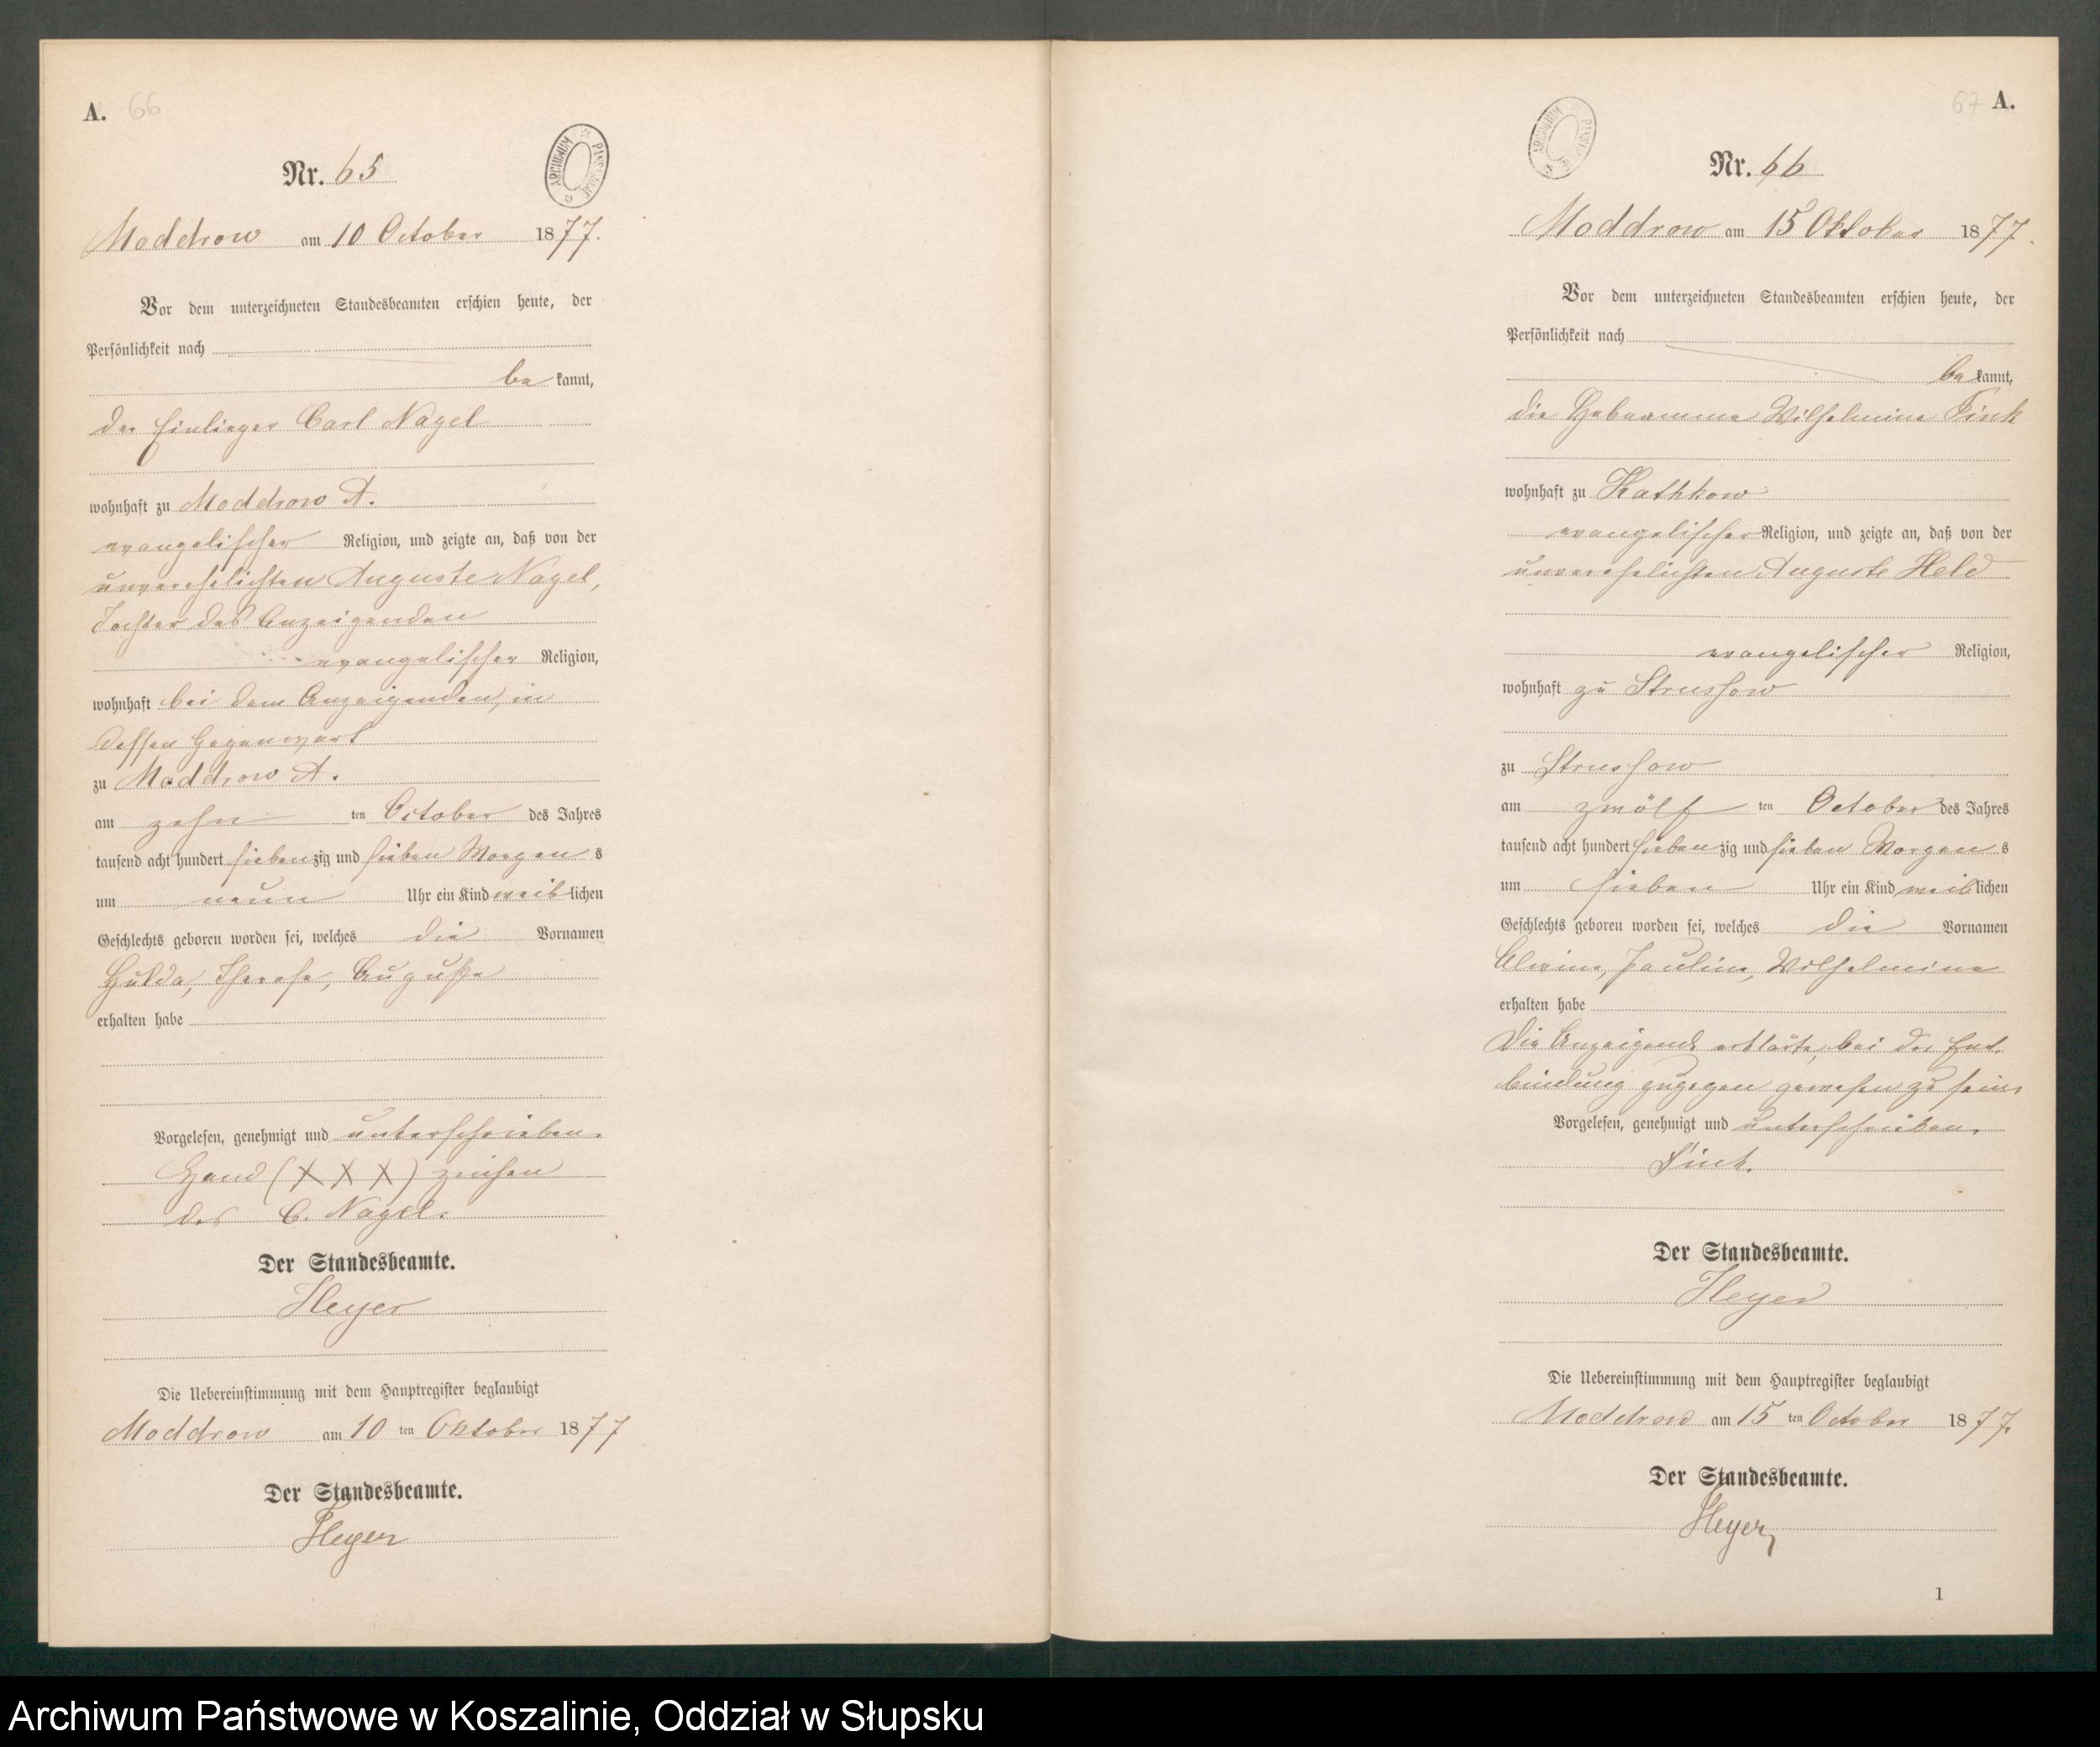 A. 66
ARCHIWUM PAŃSTWOWE
Nr. 65
Moddrow am 10 October 1877.
Vor dem unterzeichneten Standesbeamten erschien heute, der
Persönlichkeit nach
be kannt,
der Einlieger Carl Nagel
wohnhaft zu Moddrow A.
evangelischer Religion, und zeigte an, daß von der
unverehelichten Auguste Nagel,
Tochter des Anzeigenden
evangelischer Religion,
wohnhaft bei dem Anzeigenden, in
dessen Gegenwart
zu Moddrow A.
am zehn ten October des Jahres
tausend acht hundert sieben zig und sieben Morgen s
um neun Uhr ein Kind weib lichen
Geschlechts geboren worden sei, welches die Vornamen
Hulda, Therese, Auguste
erhalten habe
Vorgelesen, genehmigt und unterschrieben.
Hand (XXX) zeichen
des C. Nagel.
Der Standesbeamte.
Heyer
Die Uebereinstimmung mit dem Hauptregister beglaubigt
Moddrow am 10 ten Oktober 1877
Der Standesbeamte.
Heyer
67 A.
ARCHIWUM PAŃSTWOWE
Nr. 66
Moddrow am 15 Oktober 1877.
Vor dem unterzeichneten Standesbeamten erschien heute, der
Persönlichkeit nach
be kannt,
die Hebeamme Wilhelmine Finck
wohnhaft zu Kathkow
evangelischer Religion, und zeigte an, daß von der
unverehelichten Auguste Held
evangelischer Religion,
wohnhaft zu Strussow
zu Strussow
am zwölf ten October des Jahres
tausend acht hundert sieben zig und sieben Morgen s
um sieben Uhr ein Kind weib lichen
Geschlechts geboren worden sei, welches die Vornamen
Alwine, Pauline, Wilhelmine
erhalten habe
Die Anzeigende erklärte, bei der Ent-
bindung zugegen gewesen zu sein,
Vorgelesen, genehmigt und unterschrieben.
Finck.
Der Standesbeamte.
Heyer
Die Uebereinstimmung mit dem Hauptregister beglaubigt
Moddrow am 15 ten October 1877
Der Standesbeamte.
Heyer
1
Archiwum Państwowe w Koszalinie, Oddział w Słupsku